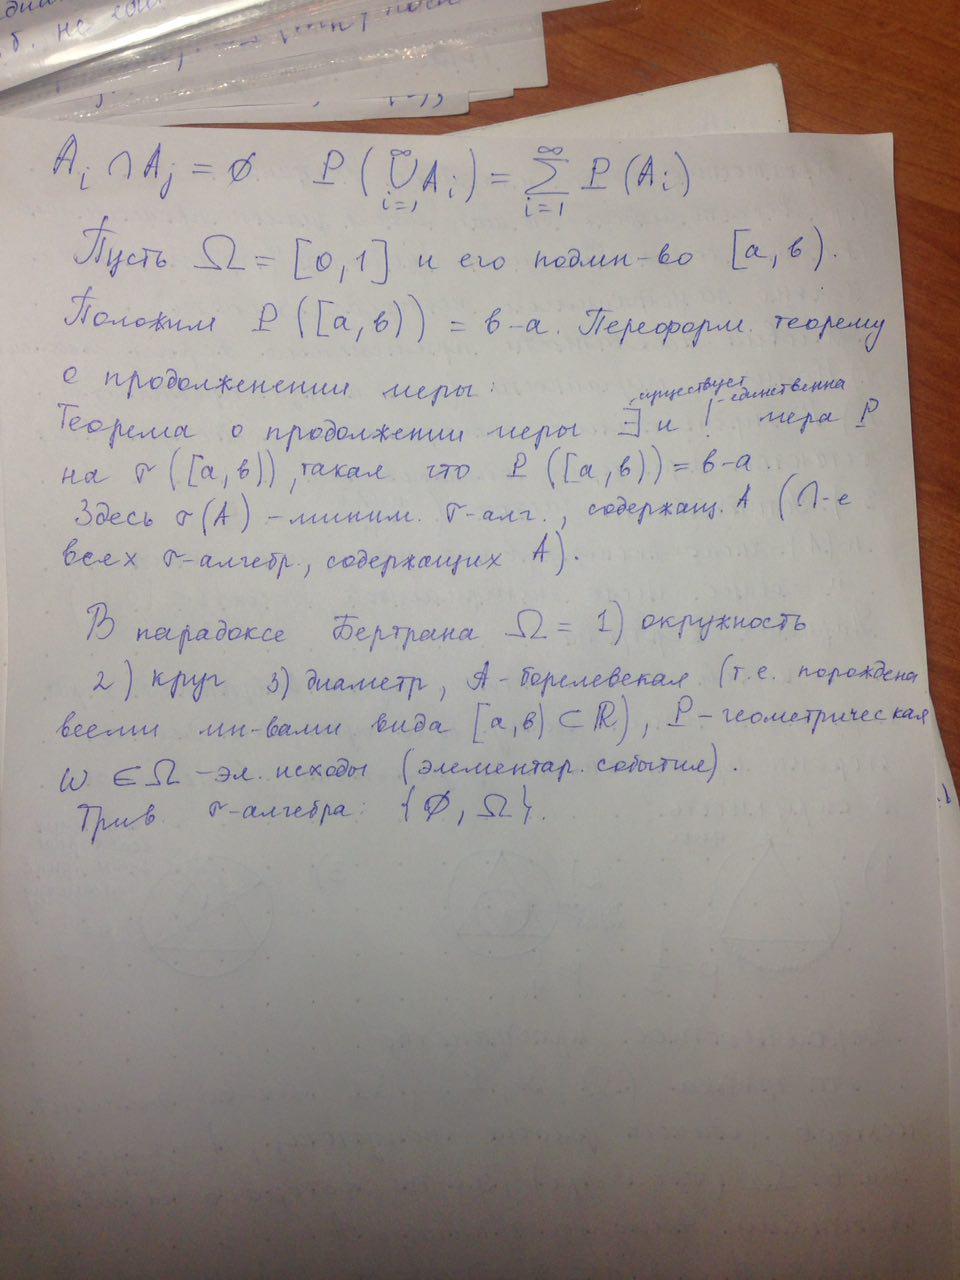 диа
.б. не
A_i ∩ A_j = ∅ P(⋃_{i=1}^{∞} A_i) = ∑_{i=1}^{∞} P(A_i)
Пусть Ω = [0,1] и его подмн-во [a, в).
Положим P([a, в)) = в-a. Переформ. теорему
о продолжении меры:
существует единственна
Теорема о продолжении меры ∃ и ! мера P
на σ([a, в)), такая что P([a, в)) = в-a.
Здесь σ(A) - миним. σ-алг., содержащ. A (∩-е
всех σ-алгебр, содержащих A).
В парадоксе Бертрана Ω = 1) окружность
2) круг 3) диаметр, A - борелевская (т.е. порождена
всеми мн-вами вида [a, в) ⊂ ℝ), P - геометрическая
ω ∈ Ω - эл. исходы (элементар. события).
Трив σ-алгебра: {∅, Ω}.